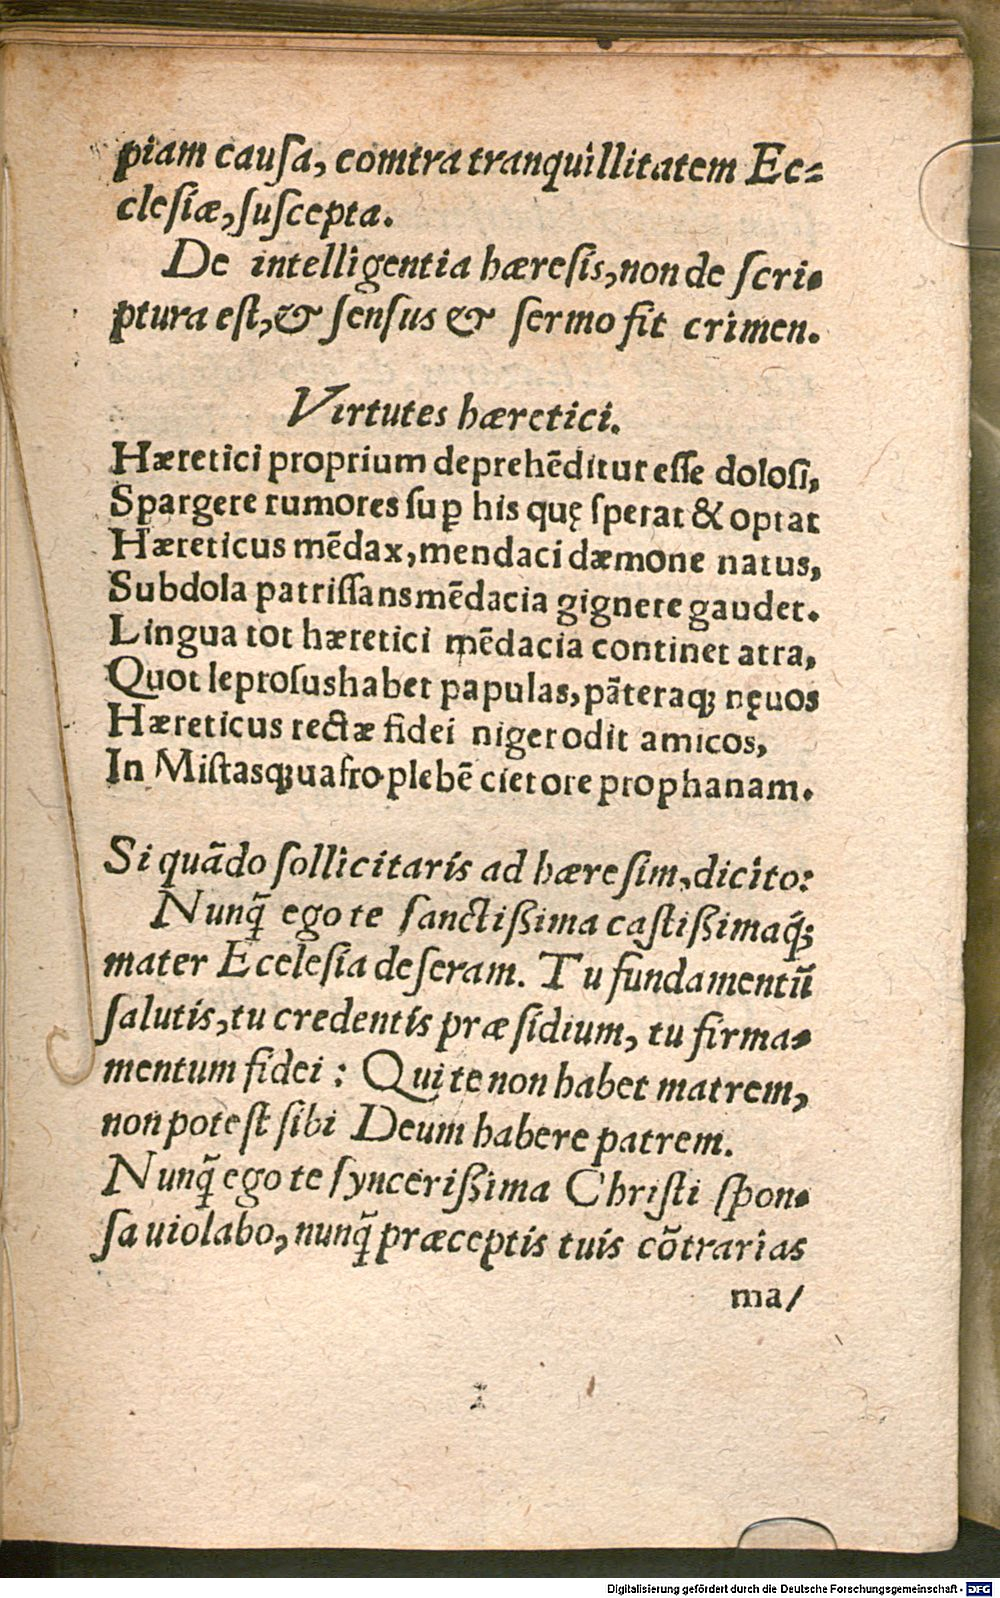 piam causa, comtra tranquillitatem Ec-
clesiæ, suscepta.
De intelligentia hæresis, non de scri-
ptura est, & sensus & sermo fit crimen.
Virtutes hæretici.
Hæretici proprium deprehēditur esse dolosi,
Spargere rumores suꝑ his quę sperat & optat
Hæreticus mēdax, mendaci dæmone natus,
Subdola patrissans mēdacia gignere gaudet.
Lingua tot hæretici mēdacia continet atra,
Quot leprosus habet papulas, pāteraqꝫ nęuos
Hæreticus rectæ fidei niger odit amicos,
In Mistasqꝫ uafro plebē ciet ore prophanam.
Si quādo sollicitaris ad hæresim, dicito:
Nunq̄ ego te sanctißima castißimaq́ꝫ
mater Ecelesia deseram. Tu fundamentū
salutis, tu credentis præsidium, tu firma-
mentum fidei: Qui te non habet matrem,
non potest sibi Deum habere patrem.
Nunq̄ ego te syncerißima Christi spon-
sa uiolabo, nunq̄ præceptis tuis cōtrarias
ma/
Digitalisierung gefördert durch die Deutsche Forschungsgemeinschaft - DFG